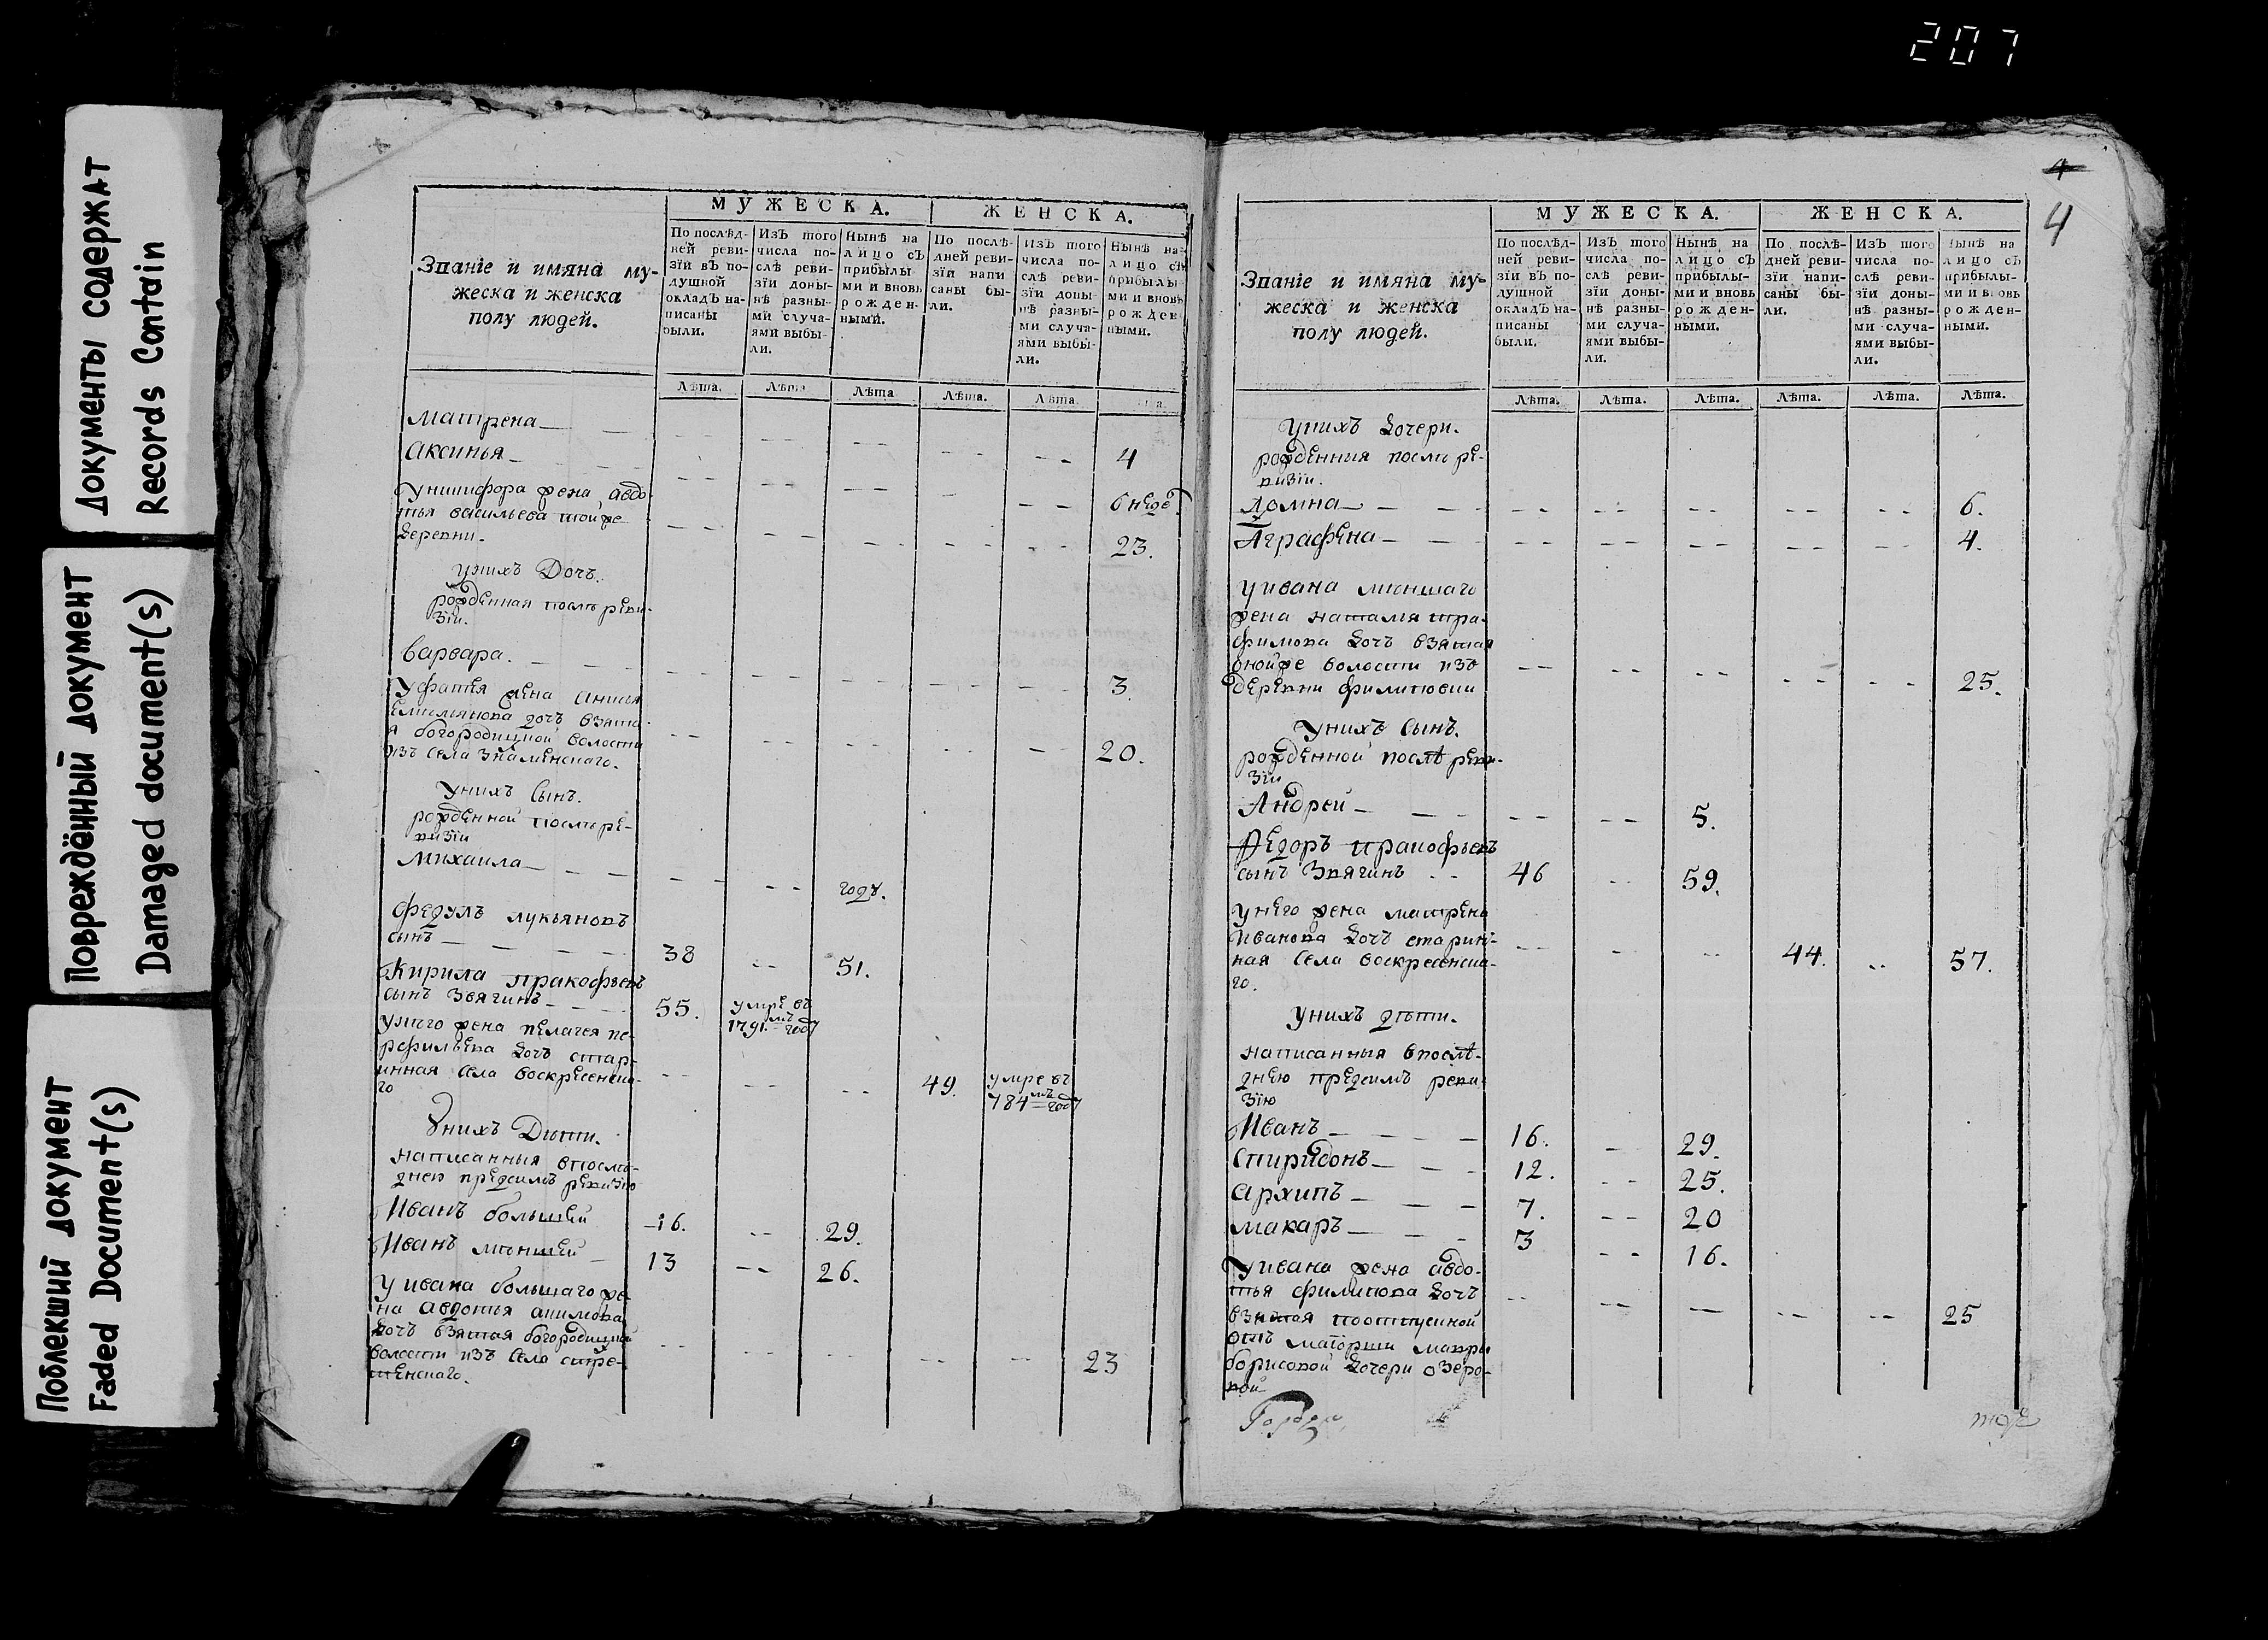 207
Документы содержат
Records Contain
Повреждённый документ
Damaged document(s)
Поблекший документ
Faded Document(s)
МУЖЕСКА. ЖЕНСКА.
Званіе и имяна му-
жеска и женска
полу людей.
По послѣд-
ней реви-
зїи вЪ по-
душной
окладЪ на-
писаны
были.
ИзЪ того
числа по-
слѣ реви-
зїи доны-
нѣ разны-
ми случа-
ями выбы-
ли.
Нынѣ на
лицо сЪ
прибылы
ми и вновь
рожден-
ными.
По послѣ-
дней реви-
зїи напи
саны бы-
ли.
ИзЪ того
числа по-
слѣ реви-
зїи доны-
нѣ разны-
ми случа-
ями выбы-
ли.
Нынѣ на
лицо сЪ
прибылы
ми и вновь
рожден
ными.
Лѣта. Лѣта Лѣта Лѣта. Лѣта.
Матрена 4
Аксинья 6 неде
Унипифора жена авдо-
тья васильева тойже
деревни. 23.
Унихъ Дочъ.
рожденная послѣ реви-
зїи.
Варвара. 3.
Уфатея жена анисья
Емельянова дочъ взята-
я богородицкой волости
изъ села знаменскаго. 20.
Унихъ Сынъ.
рожденной послѣ ре-
визїи
Михаила году.
Федулъ лукьяновъ
сынъ 38 51.
Кирила пракофьевъ
сынъ Звягинъ 55. умре въ
1791мъ году
Унего жена пелагея пе-
рфильева дочъ стар-
инная села воскресенска-
го 49. умре въ
784мъ году
Унихъ Дѣти.
написанныя впослѣ-
днею предсимъ ревизїю
Иванъ большей 16. 29.
Иванъ меншей 13 26.
Уивана большаго же-
на авдотья акимова
дочъ взятая богородицкой
волости изъ села стре-
тенскаго. 23
4
4
МУЖЕСКА. ЖЕНСКА.
Званіе и имяна му-
жеска и женска
полу людей.
По послѣд-
ней реви-
зїи вЪ по-
душной
окладЪ на-
писаны
были.
ИзЪ того
числа по-
слѣ реви-
зїи доны-
нѣ разны-
ми случа-
ями выбы-
ли.
Нынѣ на
лицо сЪ
прибылы-
ми и вновь
рожден-
ными.
По послѣ-
дней реви-
зїи напи-
саны бы-
ли.
ИзЪ того
числа по-
слѣ реви-
зїи доны-
нѣ разны-
ми случа-
ями выбы-
ли.
Нынѣ на
лицо сЪ
прибылы-
ми и вновь
рожден-
ными.
Лѣта. Лѣта. Лѣта. Лѣта. Лѣта. Лѣта.
Унихъ дочери.
рожденныя послѣ ре-
визїи.
Домна 6.
Аграфена 4.
Уивана меншаго
жена наталя тра-
фимова дочъ взятая
онойже волости изъ
деревни филитовки 25.
Унихъ сынъ.
рожденной послѣ реви-
зїи
Андрей 5.
Федоръ пракофьевъ
сынъ Звягинъ 46 59.
Унего жена матрена
Иванова дочъ старин-
ная села воскресенска-
го. 44. 57.
Унихъ дѣти.
написанныя впослѣ-
днею предсимъ реви-
зїю
Иванъ 16. 29.
Спиридонъ 12. 25.
Архипъ 7. 20
Макаръ 3 16.
Уивана жена авдо-
тья филипова дочъ
взятая поотпускной
отъ маіорши мавры
борисовой дочери озеро-
вой 25